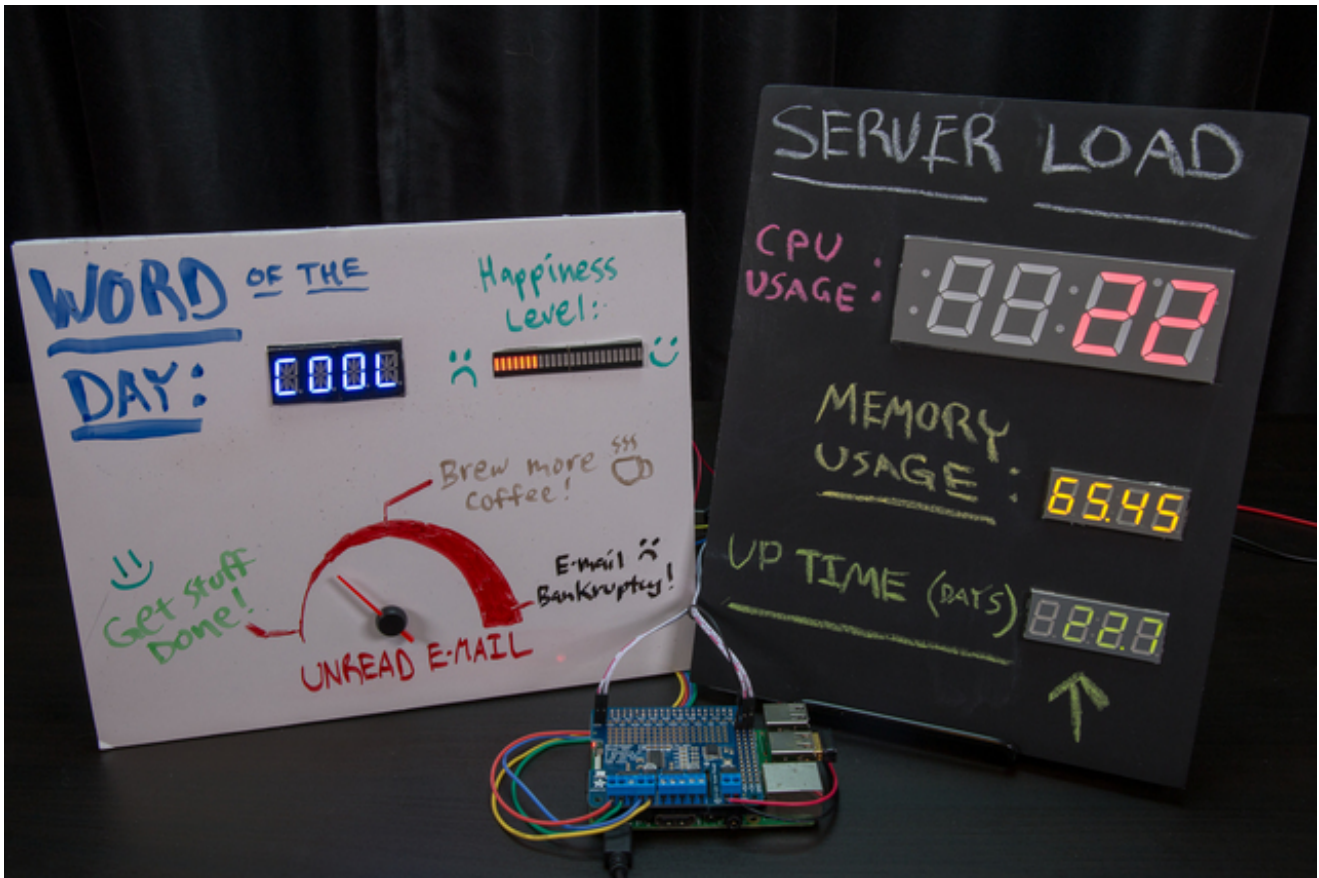 WORD OF THE
DAY:
COOL
Happiness
Level:
Brew more
coffee!
Get stuff
Done!
E-mail
Bankruptcy!
UNREAD E-MAIL
SERVER LOAD
CPU
USAGE:
22
MEMORY
USAGE:
65.45
UP TIME (DAYS)
22.7